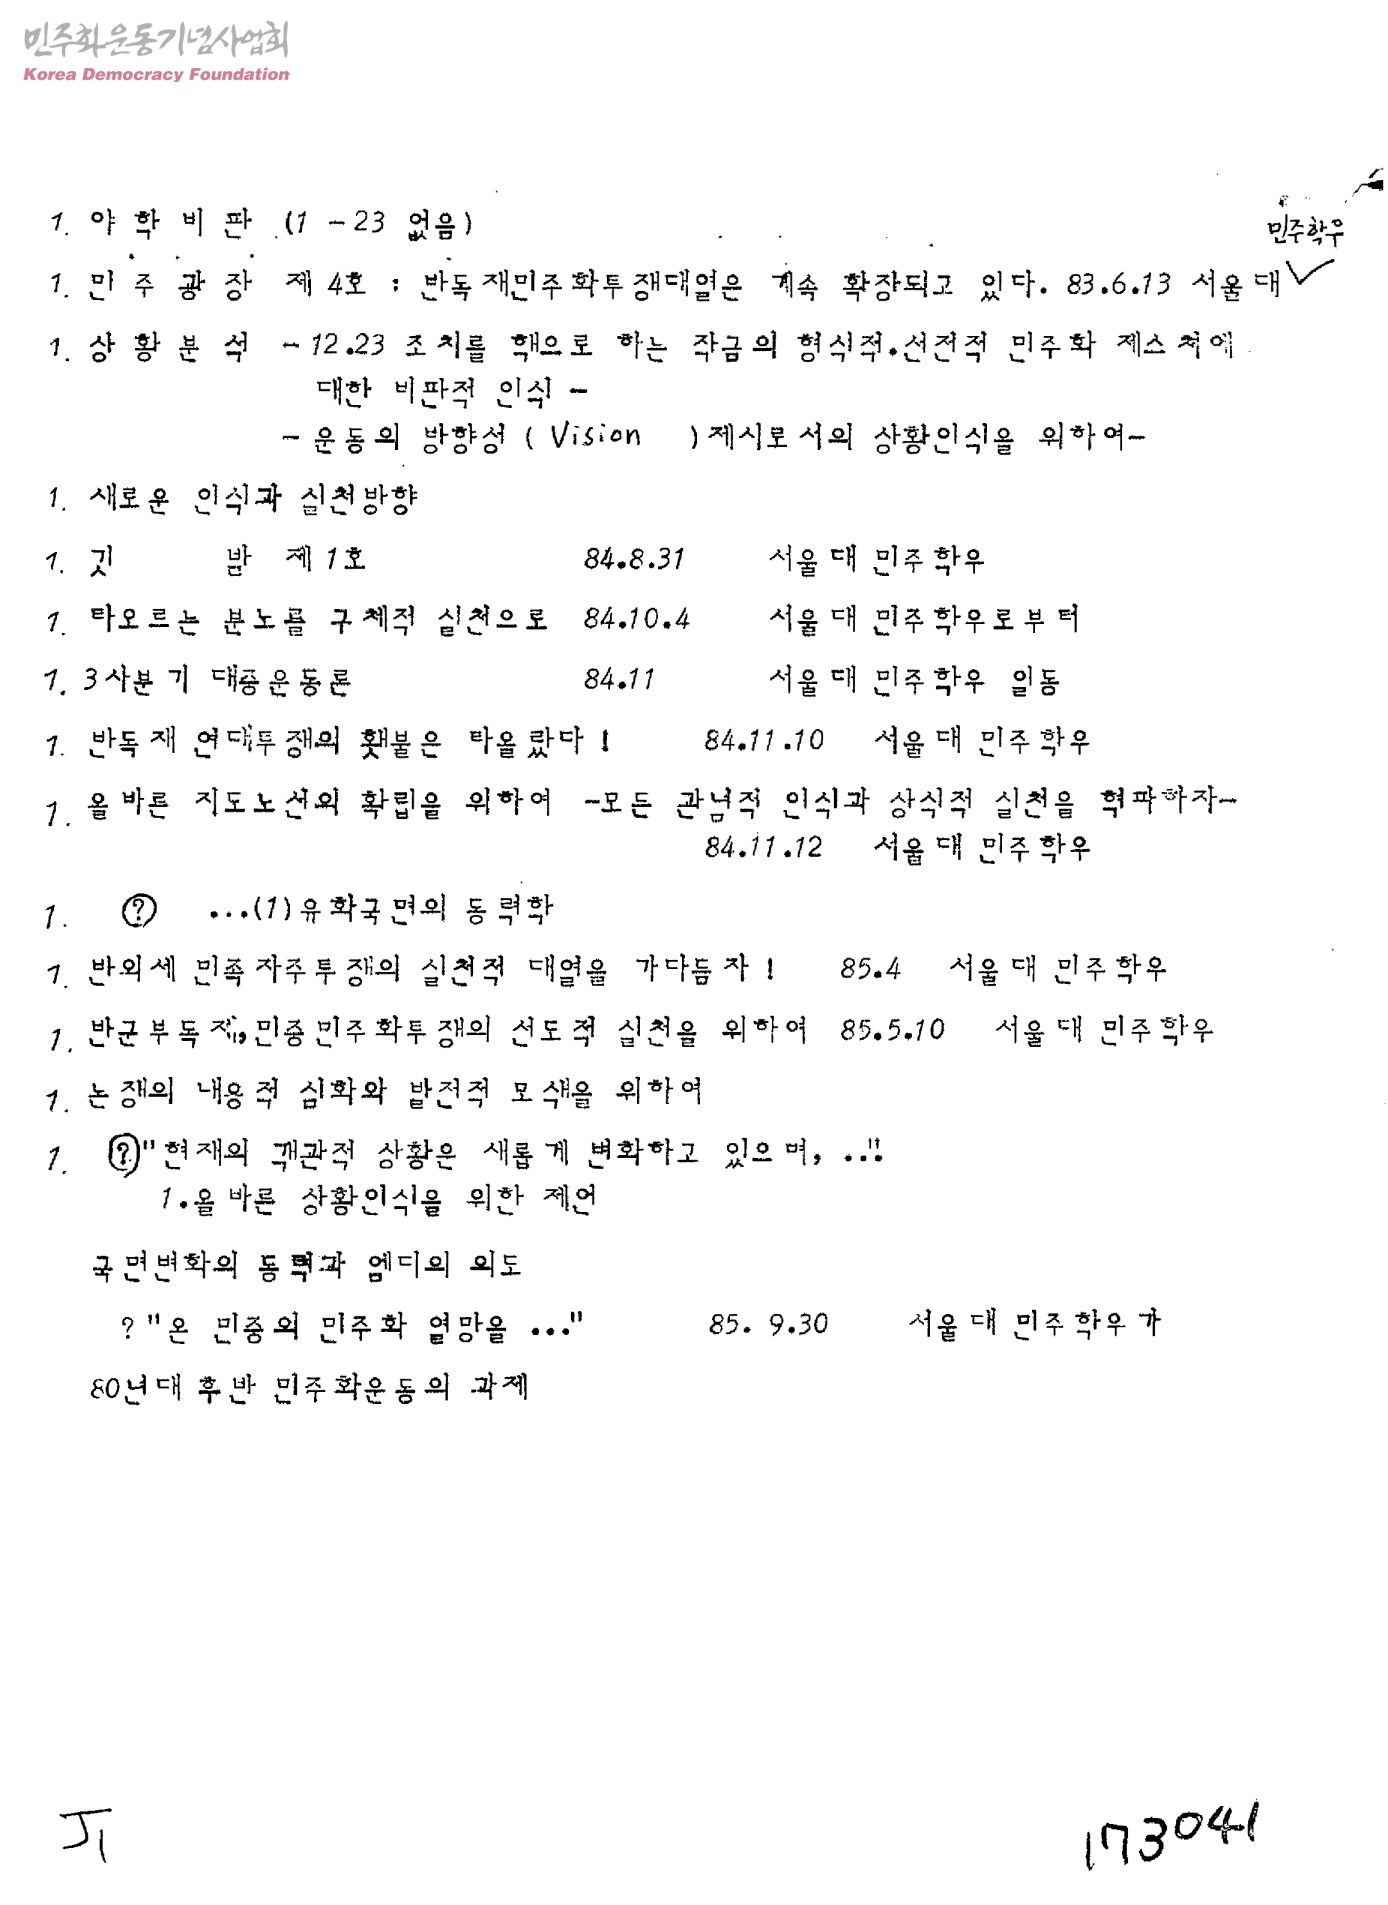 민주화운동기념사업회
Korea Democracy Foundation
1. 야 학 비 판 (1 -23 없음)
민주학우
1. 민 주 광 장 제 4호 : 반독재민주화투쟁대열은 계속 확장되고 있다. 83.6.13 서울대
1. 상 황 분 석 -12.23 조치를 핵으로 하는 작금의 형식적.선전적 민주화 제스처에
대한 비판적 인식 -
- 운동의 방향성 ( Vision ) 제시로서의 상황인식을 위하여-
1. 새로운 인식과 실천방향
1. 깃 발 제 1호 84.8.31 서울대 민주학우
1. 타오르는 분노를 구체적 실천으로 84.10.4 서울대 민주학우로부터
1. 3사분기 대중운동론 84.11 서울대 민주학우 일동
1. 반독재 연대투쟁의 횃불은 타올랐다 ! 84.11.10 서울대 민주학우
1. 올바른 지도노선의 확립을 위하여 -모든 관념적 인식과 상식적 실천을 혁파하자-
84.11.12 서울대 민주학우
1. ? ...(1)유화국면의 동력학
1. 반외세 민족자주투쟁의 실천적 대열을 가다듬자 ! 85.4 서울대 민주학우
1. 반군부독재,민중민주화투쟁의 선도적 실천을 위하여 85.5.10 서울대 민주학우
1. 논쟁의 내용적 심화와 발전적 모색을 위하여
1. ? "현재의 객관적 상황은 새롭게 변화하고 있으며, ..."
1.올바른 상황인식을 위한 제언
국면변화의 동력과 엠디의 의도
? "온 민중의 민주화 열망을 ..." 85. 9.30 서울대 민주학우가
80년대 후반 민주화운동의 과제
J1
173041